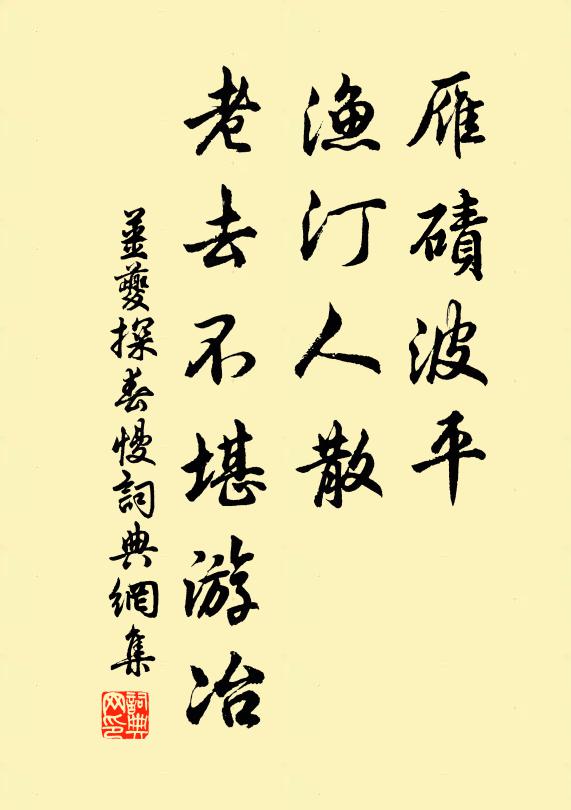 雁磧波平
漁汀人散
老去不堪游冶
姜夔探春慢詞典網集
詞典网印